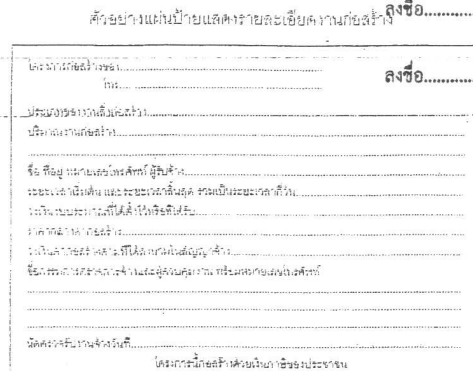 ลงชื่อ............
ตัวอย่างแผ่นป้ายแสดงรายละเอียดงานก่อสร้าง
โครงการก่อสร้างของ............
ลงชื่อ............
โทร............
ประเภทของงานสิ่งก่อสร้าง............
ปริมาณงานก่อสร้าง............
ชื่อ ที่อยู่ หมายเลขโทรศัพท์ ผู้รับจ้าง............
ระยะเวลาเริ่มต้น และระยะเวลาสิ้นสุด รวมเป็นระยะเวลากี่วัน............
วงเงินงบประมาณที่ได้ตั้งไว้หรือที่ได้รับ............
ราคากลางค่าก่อสร้าง............
วงเงินค่าก่อสร้างตามที่ได้ลงนามในสัญญาจ้าง............
ชื่อกรรมการตรวจการจ้างและผู้ควบคุมงาน พร้อมหมายเลขโทรศัพท์
นัดตรวจรับงานจ้างวันที่............
โครงการนี้ก่อสร้างด้วยเงินภาษีของประชาชน